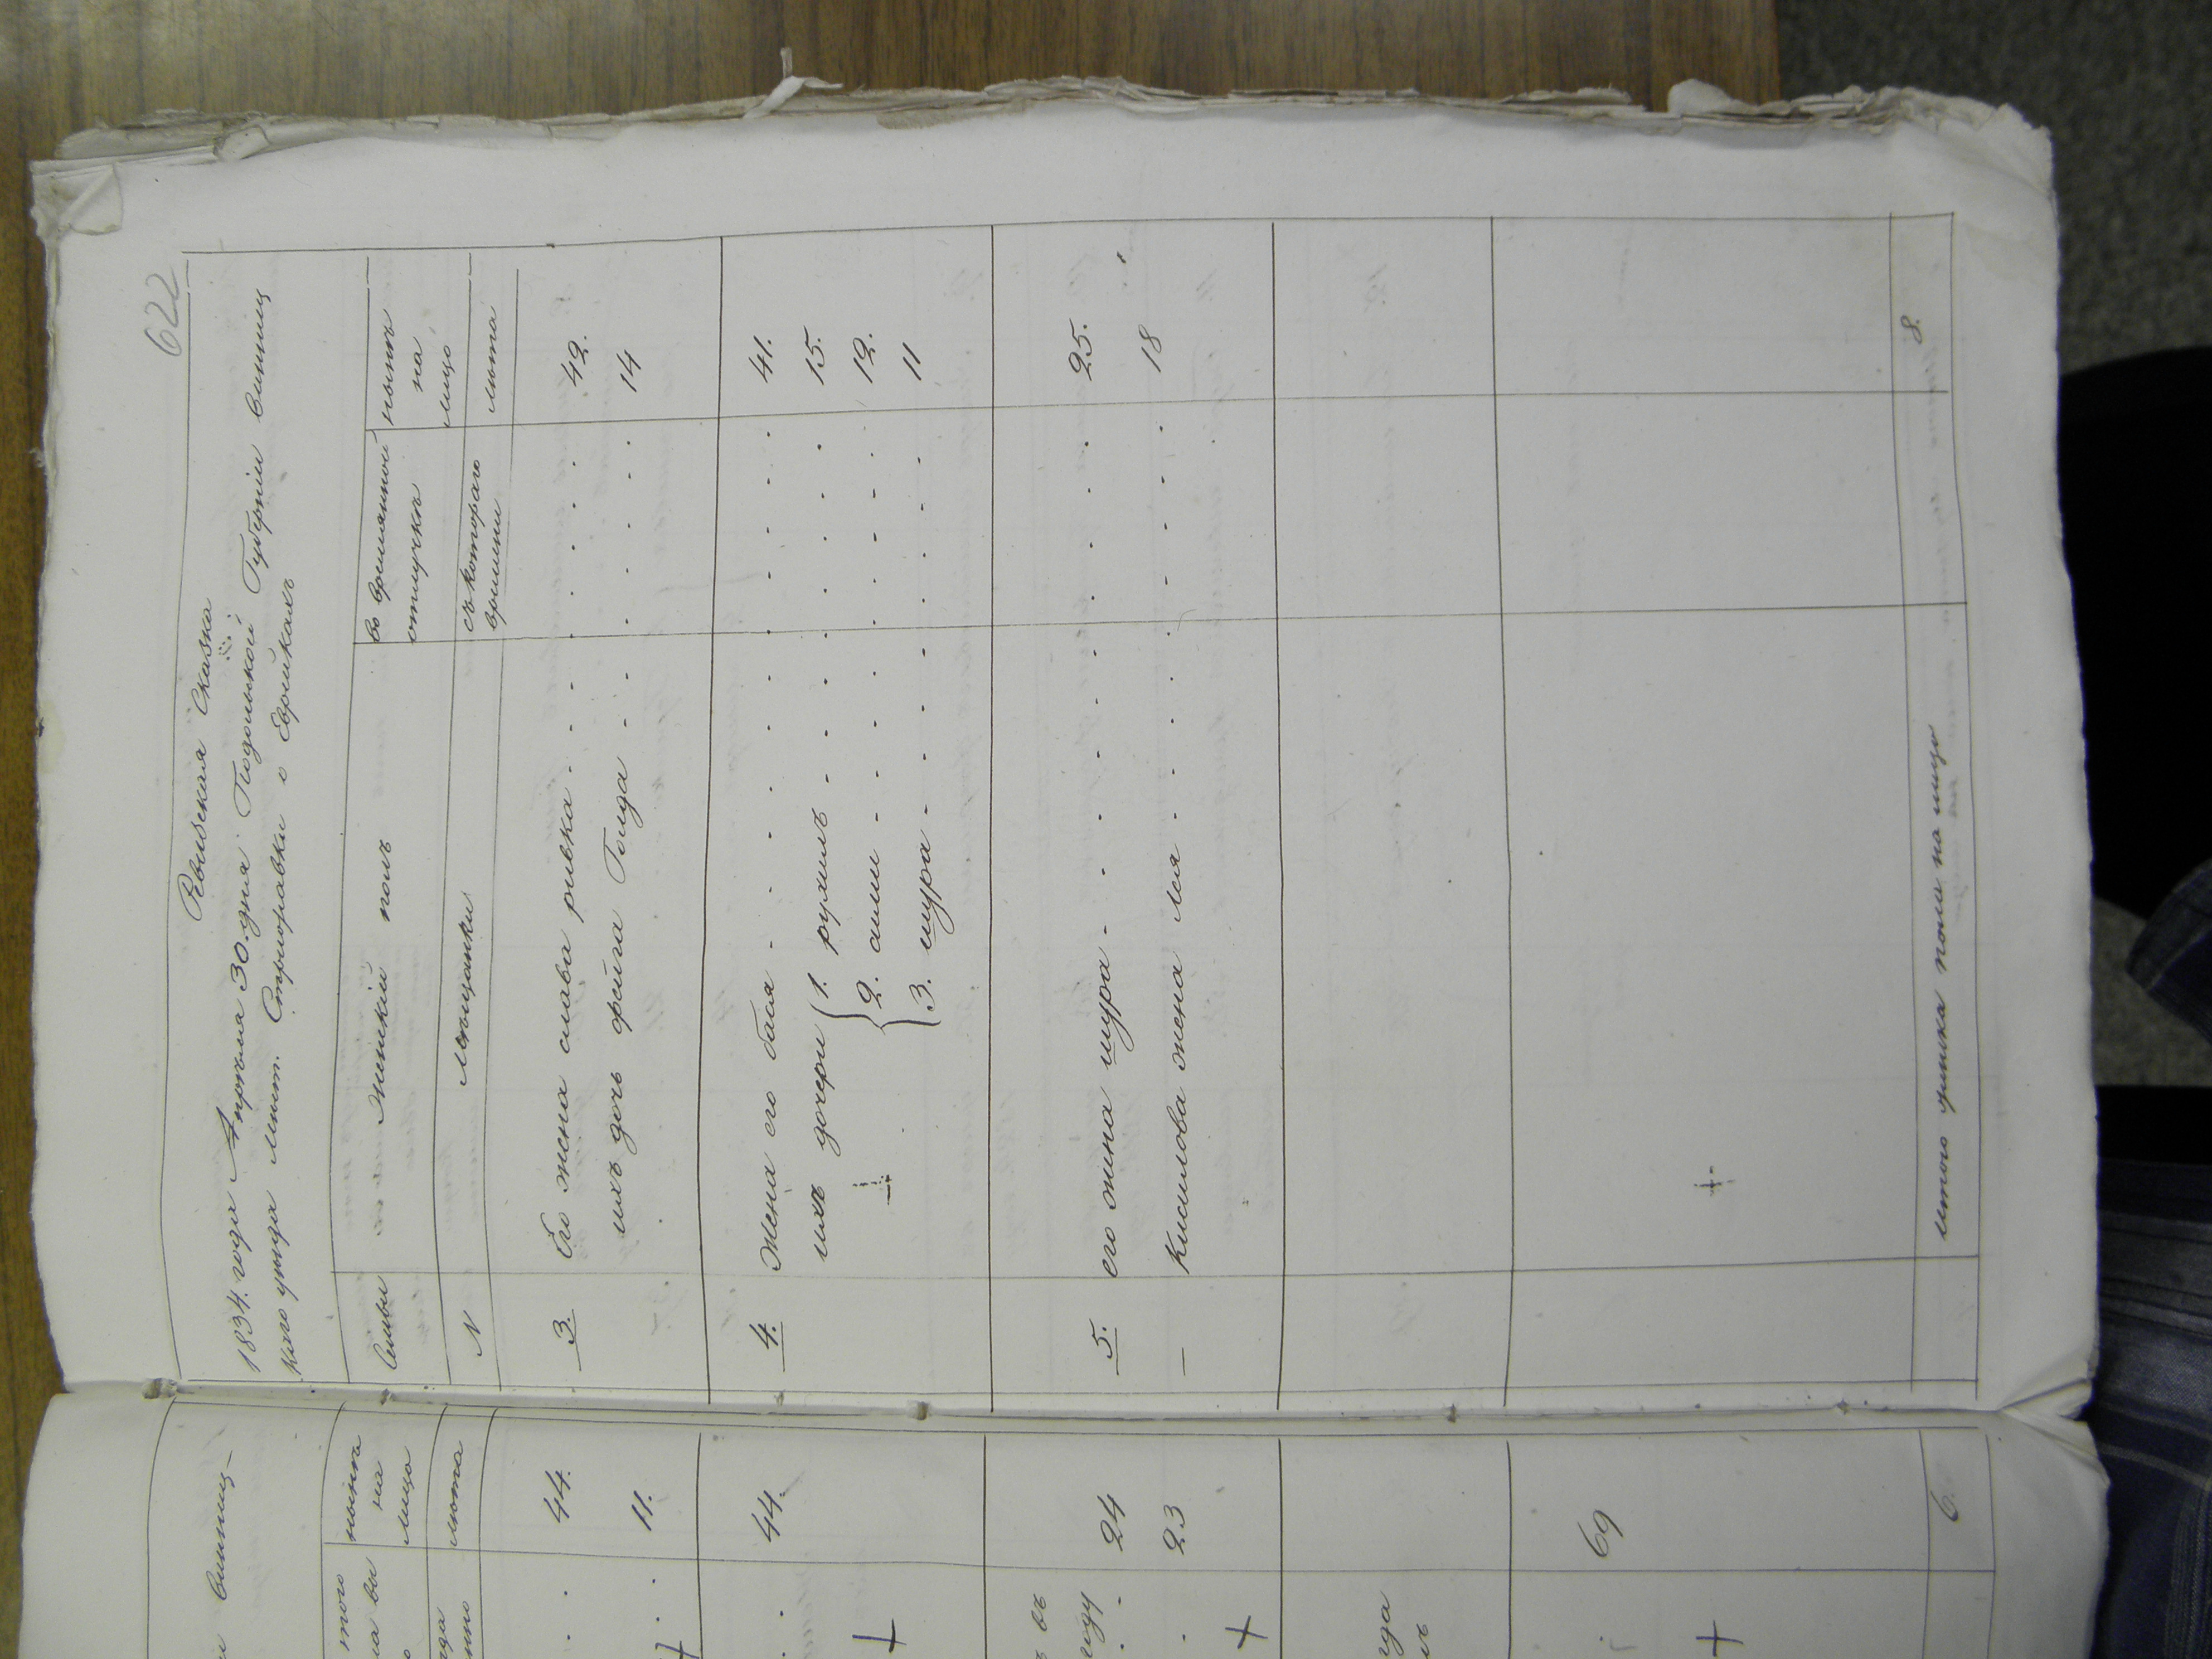 622
Ревизская Сказка
1834. года Апреля 30. дня Подольской Губернии Винниц
кого уезда Мест. Стрижавки о Еврейкахъ
Семьи
Женский полъ
во временной
отлучкѣ
нынѣ
на
лицо
N
Мещанки
съ котораго
времени
лѣта
3. Его жена слава ривка - - - 42.
ихъ дочь фейга Голда - - - 14
4. Жена его бася - - - 41.
ихъ дочери 1. рухиль - - - 15.
2. - - - 12.
3. шура - - - 11
5. его жена шура - - - 25.
— Кисилова жена Лея - - - 18
итого женска пола на лицо 8.
Винниц-
того
нынѣ
на
лицо
лѣта
44.
11.
+
44.
+
въ
году
24
23
+
года
69
+
6.